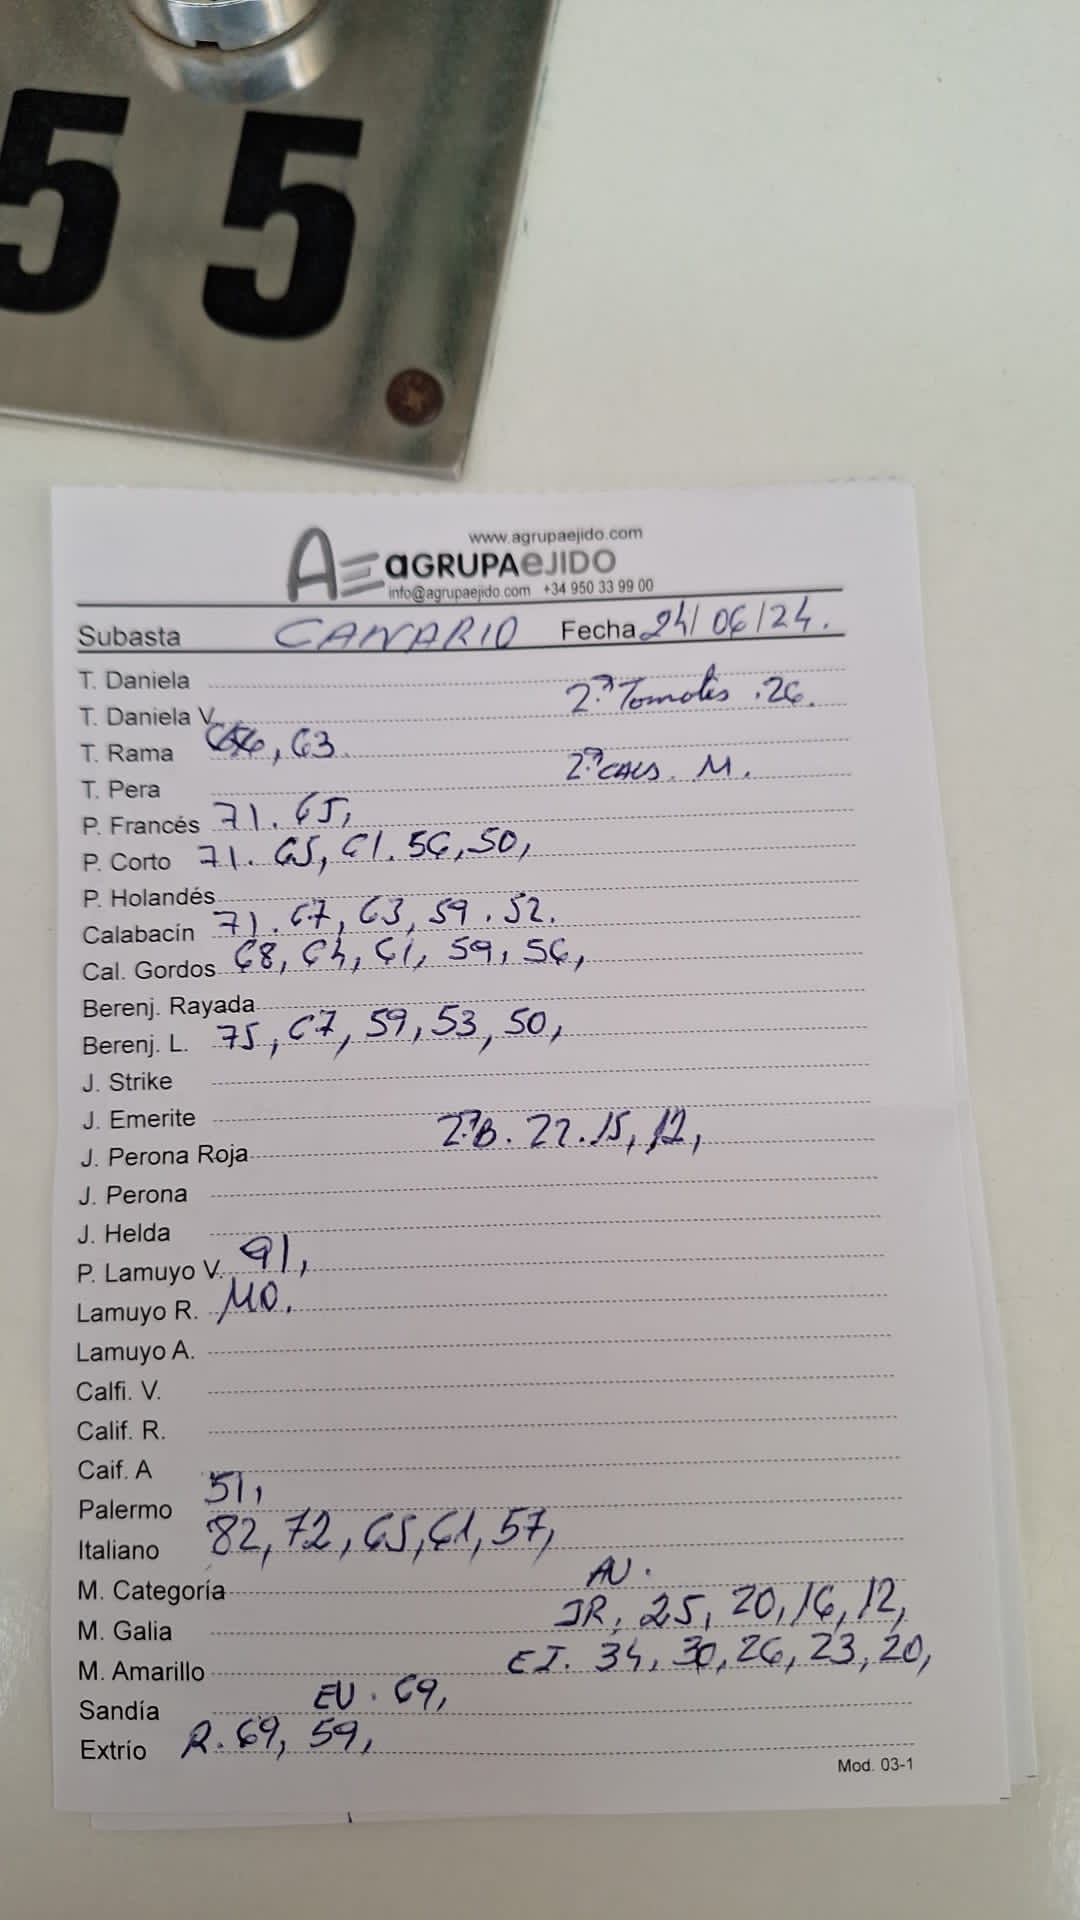 55
www.agrupaejido.com
AE aGRUPAeJIDO
info@agrupaejido.com +34 950 33 99 00
Subasta CANARIO Fecha 24/06/24.
T. Daniela
T. Daniela V. 2ª Tomates .26.
T. Rama , 63.
T. Pera 2ª CALS. M.
P. Francés 71. 65,
P. Corto 71. 65, 61. 56, 50,
P. Holandés
Calabacín 71. 67, 63, 59. 52.
Cal. Gordos 68, 64, 61, 59, 56,
Berenj. Rayada
Berenj. L. 75, 67, 59, 53, 50,
J. Strike
J. Emerite
J. Perona Roja 2ªB. 22. 15, 12,
J. Perona
J. Helda
P. Lamuyo V. 91,
Lamuyo R. 110.
Lamuyo A.
Calfi. V.
Calif. R.
Caif. A
Palermo 51,
Italiano 82, 72, 65, 61, 57,
M. Categoría AU.
M. Galia JR. 25, 20, 16, 12,
M. Amarillo EJ. 34, 30, 26, 23, 20,
Sandía EU. 69,
Extrío R. 69, 59,
Mod. 03-1